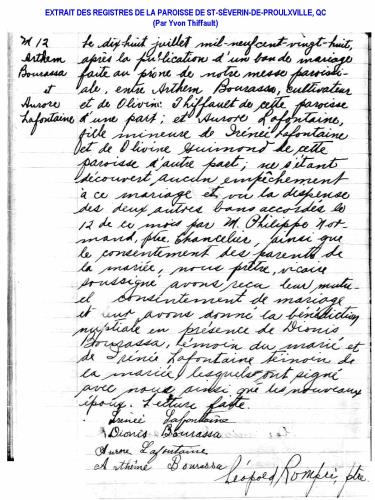 EXTRAIT DES REGISTRES DE LA PAROISSE DE ST-SÉVERIN-DE-PROULXVILLE, QC
(Par Yvon Thiffault)
M 12
Arthem
Bourassa
et
Aurore
Lafontaine
Le dix huit juillet mil neuf cent vingt-huit,
après la publication d'un ban de mariage
faite au prône de notre messe paroissi-
ale, entre Arthem Bourassa, cultivateur
et de Olivine Thiffault de cette paroisse
d'une part; et Aurore Lafontaine,
fille mineure de Irénée Lafontaine
et de Olivine Guimond de cette
paroisse d'autre part; ne s'étant
découvert aucun empêchement
à ce mariage et vu la dispense
des deux autres bans accordés le
12 de ce mois par M. Philippe Nor-
mand, ptre, Chancelier, ainsi que
le consentement des parents de
la mariée, nous prêtre, vicaire
soussigné avons reçu leur mutu-
el consentement de mariage
et leur avons donné la bénédiction
nuptiale en présence de Dionis
Bourassa, témoin du marié et
de Irénée Lafontaine témoin de
la mariée lesquels ont signé
avec nous ainsi que les nouveaux
époux. Lecture faite.
Irénée Lafontaine
Dionis Bourassa
Aurore Lafontaine
Arthême Bourassa
Léopold Rompré ptre.